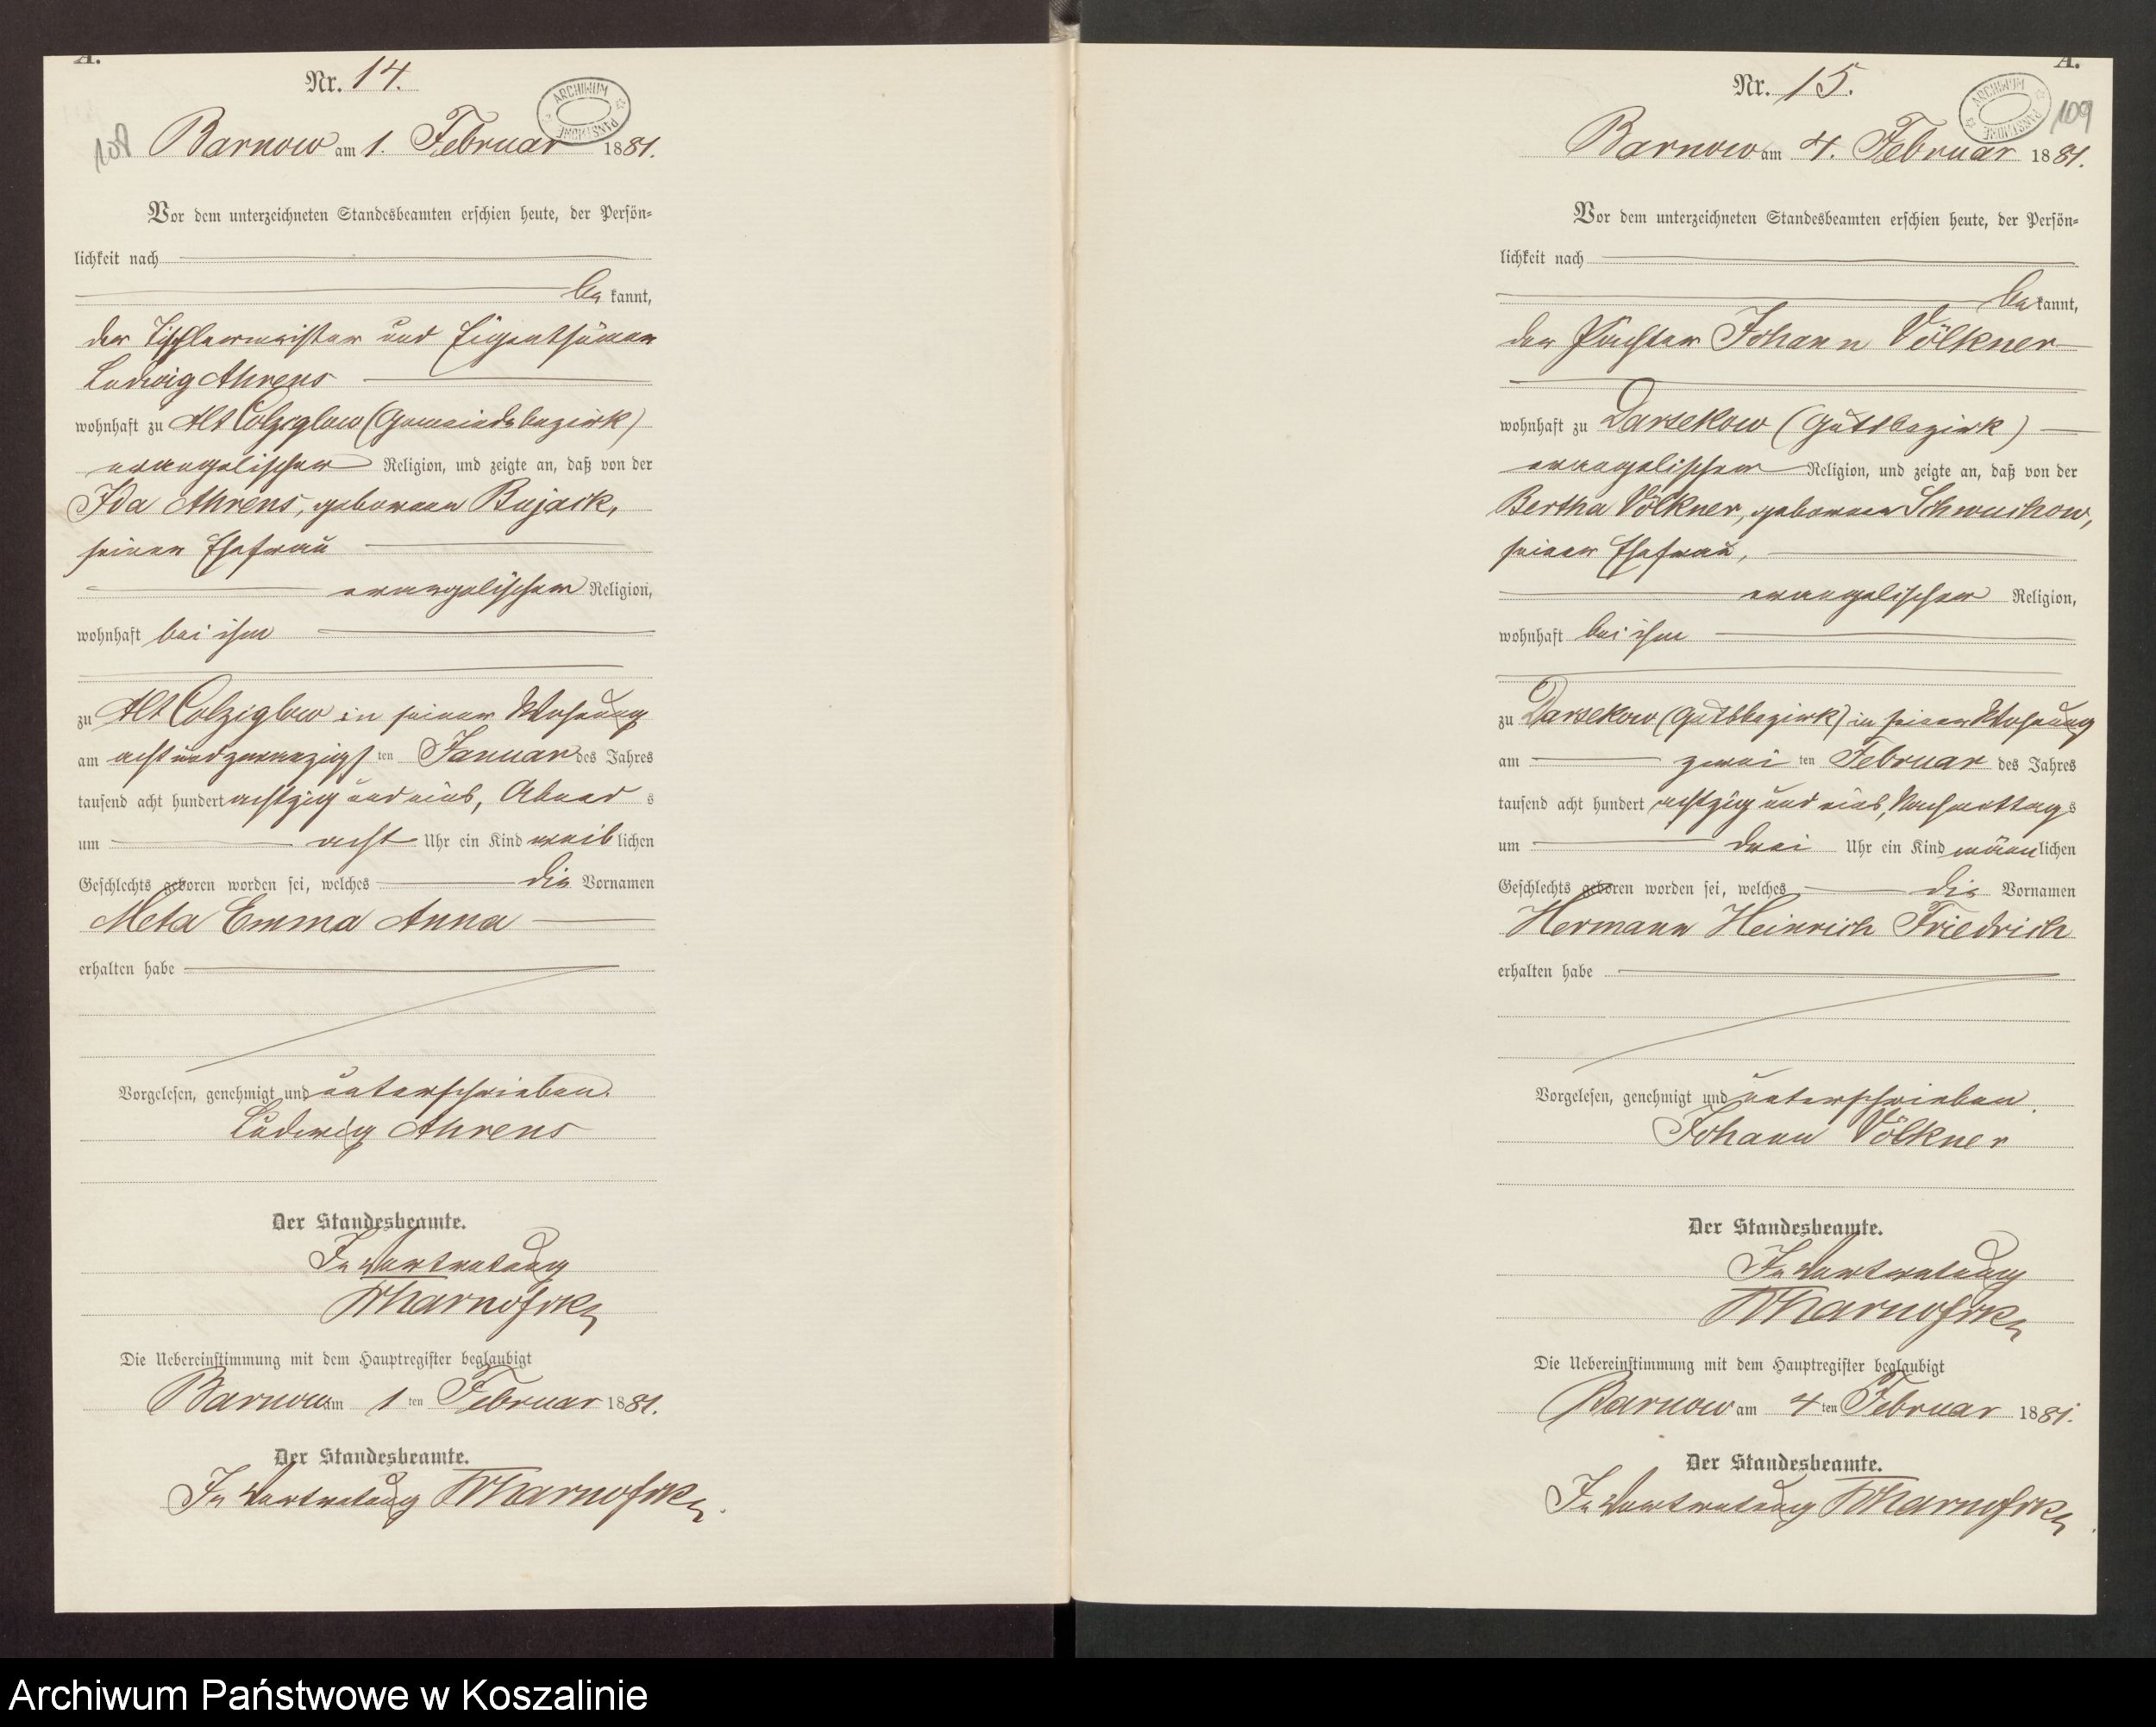 A.
Nr. 14.
ARCHIWUM PAŃSTWOWE
108
Barnow am 1. Februar 1881.
Vor dem unterzeichneten Standesbeamten erschien heute, der Persön-
lichkeit nach
be kannt,
der Tischlermeister und Eigenthümer
Ludwig Ahrens
wohnhaft zu Alt Colziglow (Gemeindebezirk)
evangelischer Religion, und zeigte an, daß von der
Ida Ahrens, geborenen Bujack,
seiner Ehefrau
evangelischer Religion,
wohnhaft bei ihm
zu Alt Colziglow in seiner Wohnung
am acht und zwanzigsten Januar des Jahres
tausend acht hundert achtzig und eins, Abends
um acht Uhr ein Kind weiblichen
Geschlechts geboren worden sei, welches die Vornamen
Meta Emma Anna
erhalten habe
Vorgelesen, genehmigt und unterschrieben.
Ludwig Ahrens
Der Standesbeamte.
In Vertretung
Die Uebereinstimmung mit dem Hauptregister beglaubigt
Barnow am 1 ten Februar 1881.
Der Standesbeamte.
In Vertretung
A.
Nr. 15.
ARCHIWUM PAŃSTWOWE
109
Barnow am 4. Februar 1881.
Vor dem unterzeichneten Standesbeamten erschien heute, der Persön-
lichkeit nach
be kannt,
der Pächter Johann Völkner
wohnhaft zu Darsekow (Gutsbezirk)
evangelischer Religion, und zeigte an, daß von der
Bertha Völkner, geborenen Schwuchow,
seiner Ehefrau,
evangelischer Religion,
wohnhaft bei ihm
zu Darsekow (Gutsbezirk) in seiner Wohnung
am zwei ten Februar des Jahres
tausend acht hundert achtzig und eins, Nachmittags
um drei Uhr ein Kind männlichen
Geschlechts geboren worden sei, welches die Vornamen
Hermann Heinrich Friedrich
erhalten habe
Vorgelesen, genehmigt und unterschrieben.
Johann Völkner
Der Standesbeamte.
In Vertretung
Die Uebereinstimmung mit dem Hauptregister beglaubigt
Barnow am 4 ten Februar 1881.
Der Standesbeamte.
In Vertretung
Archiwum Państwowe w Koszalinie